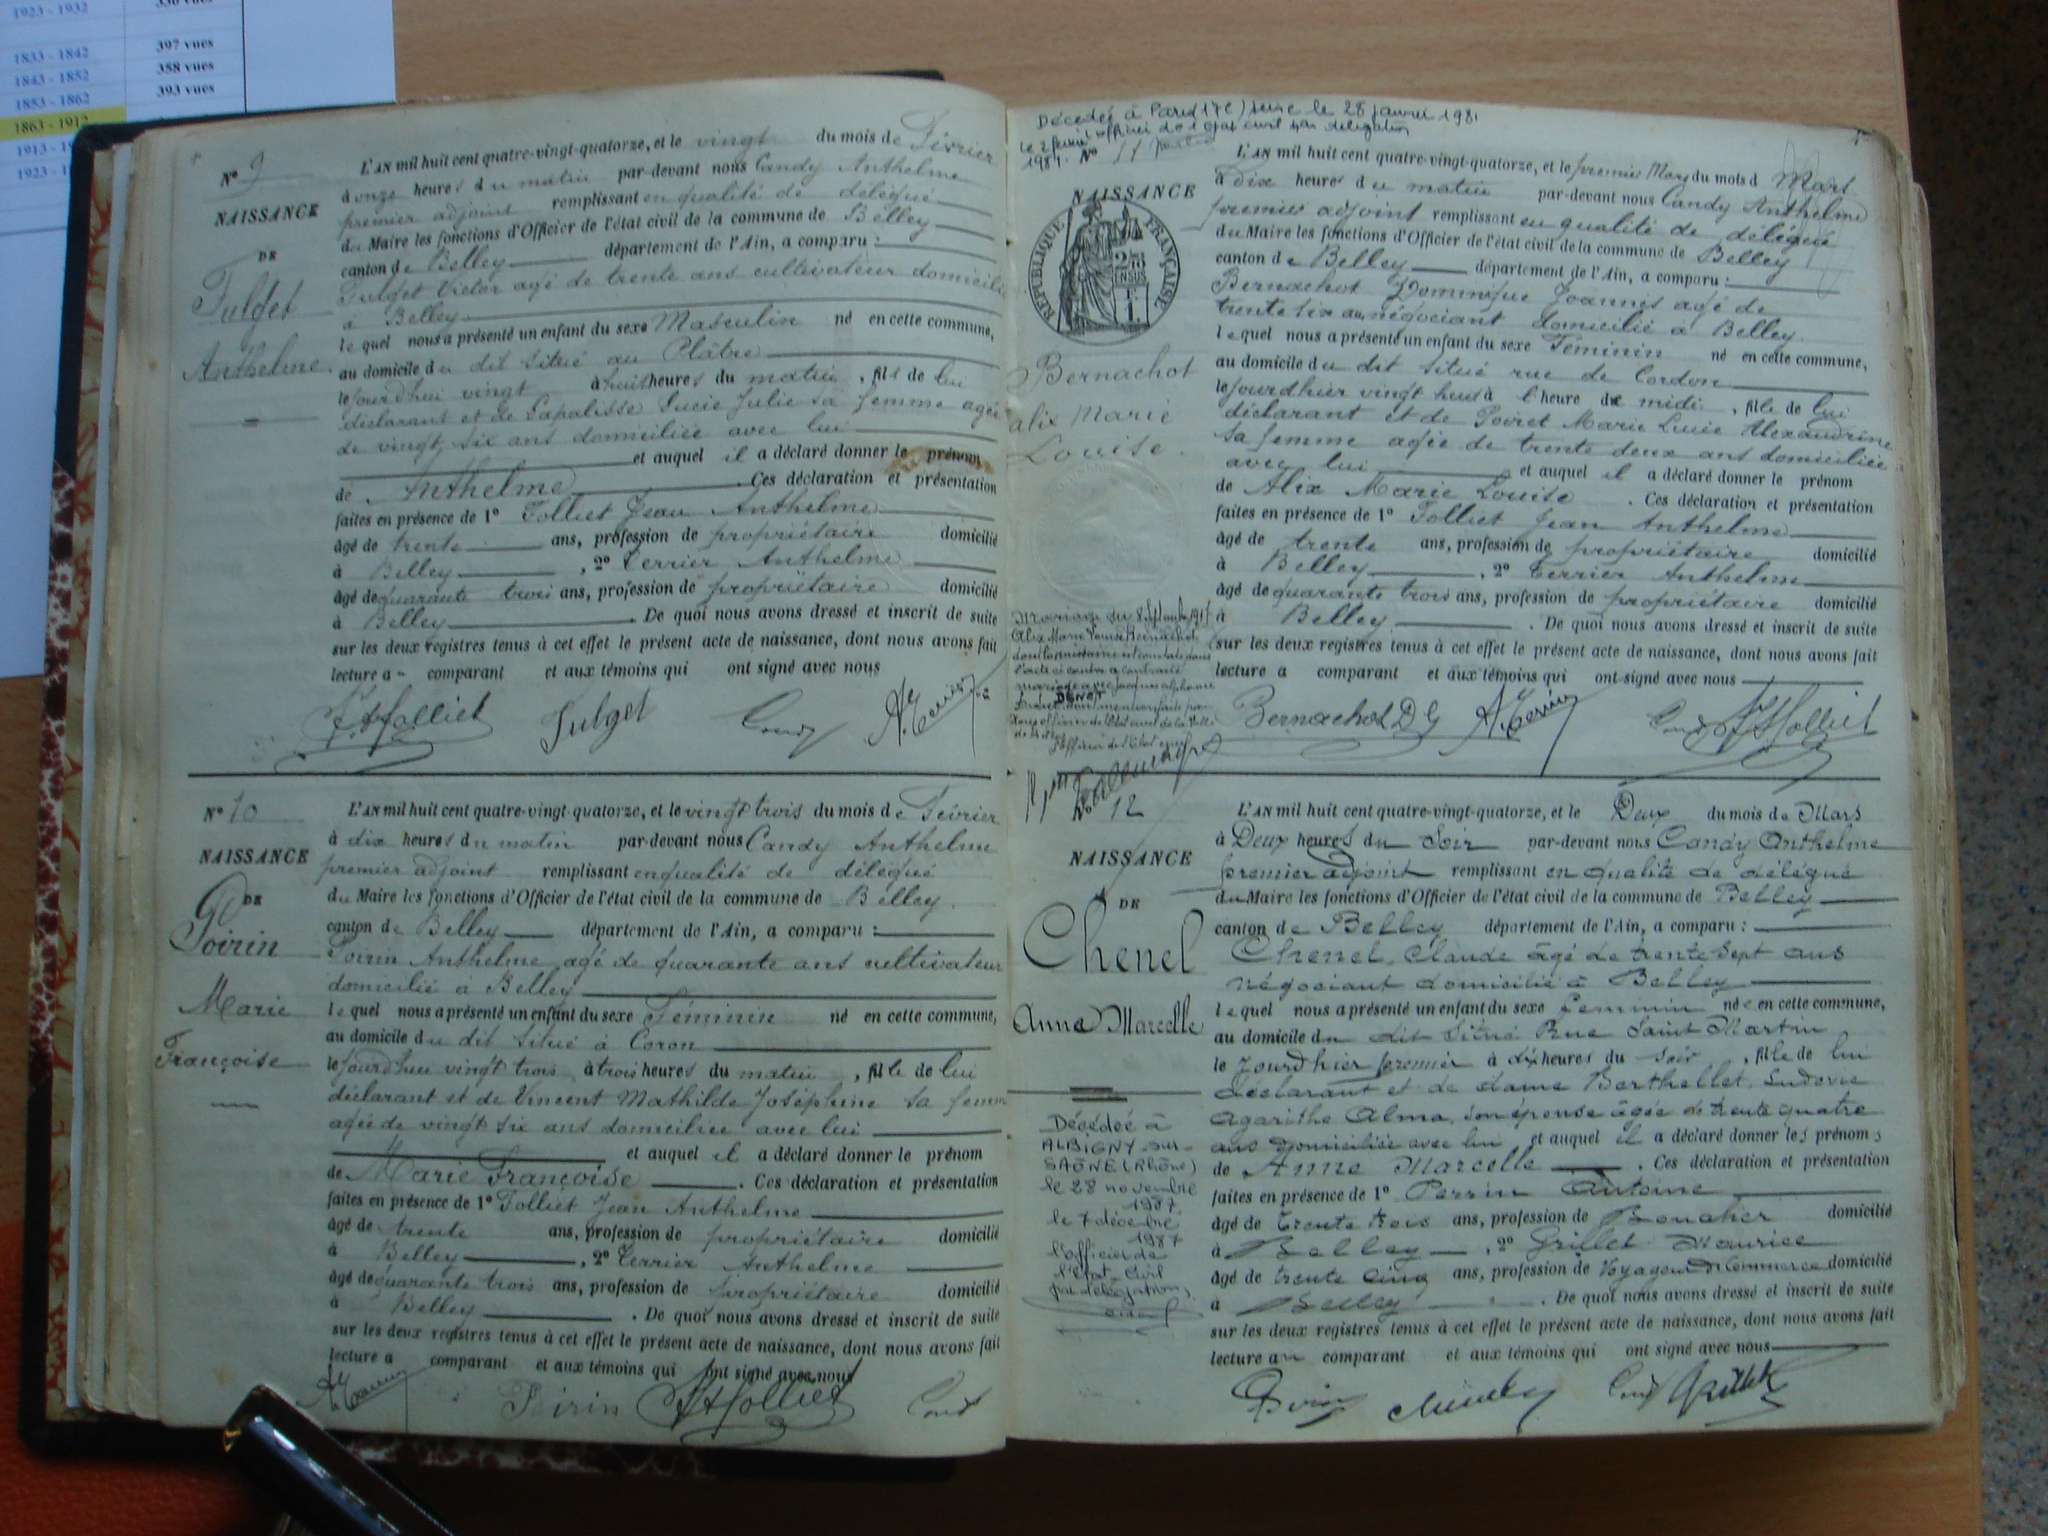 1923 - 1932
1833 - 1842 397 vues
1843 - 1852 358 vues
1853 - 1862 393 vues
1863 - 1912
N° 9
NAISSANCE
DE
Fulget
Anthelme
L'AN mil huit cent quatre-vingt-quatorze, et le vingt du mois de Février
à onze heures du matin par-devant nous Candy Anthelme
premier adjoint remplissant en qualité de délégué
du Maire les fonctions d'Officier de l'état civil de la commune de Belley
canton de Belley département de l'Ain, a comparu :
Fulget Victor agé de trente ans cultivateur domicilié
à Belley
lequel nous a présenté un enfant du sexe Masculin né en cette commune,
au domicile du dit situé au Plâtre
le jourd'hui vingt à huit heures du matin, fils de lui
déclarant et de Lapalisse Lucie Julie sa femme agée
de vingt six ans domiciliée avec lui
et auquel il a déclaré donner le prénom
de Anthelme. Ces déclaration et présentation
faites en présence de 1° Folliet Jean Anthelme
âgé de trente ans, profession de propriétaire domicilié
à Belley, 2° Terrier Anthelme
âgé de quarante trois ans, profession de propriétaire domicilié
à Belley. De quoi nous avons dressé et inscrit de suite
sur les deux registres tenus à cet effet le présent acte de naissance, dont nous avons fait
lecture a comparant et aux témoins qui ont signé avec nous
Folliet Fulget Candy A. Terrier
N° 10
NAISSANCE
DE
Poirin
Marie
Françoise
L'AN mil huit cent quatre-vingt-quatorze, et le vingt trois du mois de Février
à dix heures du matin par-devant nous Candy Anthelme
premier adjoint remplissant en qualité de délégué
du Maire les fonctions d'Officier de l'état civil de la commune de Belley.
canton de Belley département de l'Ain, a comparu :
Poirin Anthelme agé de quarante ans cultivateur
domicilié à Belley
lequel nous a présenté un enfant du sexe Féminin né en cette commune,
au domicile du dit situé à Coron
le jourd'hui vingt trois à trois heures du matin, fille de lui
déclarant et de Vincent Mathilde Joséphine sa femme
agée de vingt six ans domiciliée avec lui
et auquel il a déclaré donner le prénom
de Marie Françoise. Ces déclaration et présentation
faites en présence de 1° Folliet Jean Anthelme
âgé de trente ans, profession de propriétaire domicilié
à Belley, 2° Terrier Anthelme
âgé de quarante trois ans, profession de propriétaire domicilié
à Belley. De quoi nous avons dressé et inscrit de suite
sur les deux registres tenus à cet effet le présent acte de naissance, dont nous avons fait
lecture a comparant et aux témoins qui ont signé avec nous
A Terrier Poirin Folliet Candy
Décédée à Paris (17e) le 28 janvier 1981
l'officier de l'état civil par délégation
1981. N° 11
NAISSANCE
RÉPUBLIQUE FRANÇAISE
Bernachot
Alix Marie
Louise.
L'AN mil huit cent quatre-vingt-quatorze, et le premier Mars du mois d Mars
à Dix heures du matin par-devant nous Candy Anthelme
premier adjoint remplissant en qualité de délégué
du Maire les fonctions d'Officier de l'état civil de la commune de Belley
canton de Belley département de l'Ain, a comparu :
Bernachot Dominique Joannès agé de
trente six ans négociant domicilié à Belley.
lequel nous a présenté un enfant du sexe Féminin né en cette commune,
au domicile du dit situé rue de Cordon
le jourd'hier vingt heus à l'heure de midi, fille de lui
déclarant et de Poiret Marie Lucie Alexandrine
sa femme agée de trente deux ans domiciliée
avec lui et auquel il a déclaré donner le prénom
de Alix Marie Louise. Ces déclaration et présentation
faites en présence de 1° Folliet Jean Anthelme
âgé de trente ans, profession de propriétaire domicilié
à Belley, 2° Terrier Anthelme
âgé de quarante trois ans, profession de propriétaire domicilié
à Belley. De quoi nous avons dressé et inscrit de suite
sur les deux registres tenus à cet effet le présent acte de naissance, dont nous avons fait
lecture a comparant et aux témoins qui ont signé avec nous
Mariage du 8 Septembre
Alix Marie Louise Bernachot
l'acte ci contre a contracté
mariage avec Jacques Alphonse
DENOT
Bernachot D A. Terrier Candy Folliet
N° 12
NAISSANCE
DE
Chenel
Anne Marcelle
Décédée à
ALBIGNY-sur-
SAÔNE (Rhône)
le 28 novembre
1987
le 7 décembre
1987
l'officier de
l'Etat-Civil
par délégation,
L'AN mil huit cent quatre-vingt-quatorze, et le Deux du mois de Mars
à Deux heures du Soir par-devant nous Candy Anthelme
premier adjoint remplissant en qualité de délégué
du Maire les fonctions d'Officier de l'état civil de la commune de Belley
canton de Belley département de l'Ain, a comparu :
Chenel Claude âgé de trente sept ans
négociant domicilié à Belley
lequel nous a présenté un enfant du sexe feminin née en cette commune,
au domicile du dit situé Rue Saint Martin
le Jourdhier premier à dix heures du soir, fille de lui
déclarant et de dame Berthellet Ludovie
Agarithe Alma, son épouse âgée de trente quatre
ans domiciliée avec lui et auquel il a déclaré donner les prénoms
de Anne Marcelle. Ces déclaration et présentation
faites en présence de 1° Perrin Antoine
âgé de trente trois ans, profession de Boucher domicilié
à Belley, 2° Grillet Maurice
âgé de trente cinq ans, profession de Voyageur de Commerce domicilié
à Belley. De quoi nous avons dressé et inscrit de suite
sur les deux registres tenus à cet effet le présent acte de naissance, dont nous avons fait
lecture au comparant et aux témoins qui ont signé avec nous